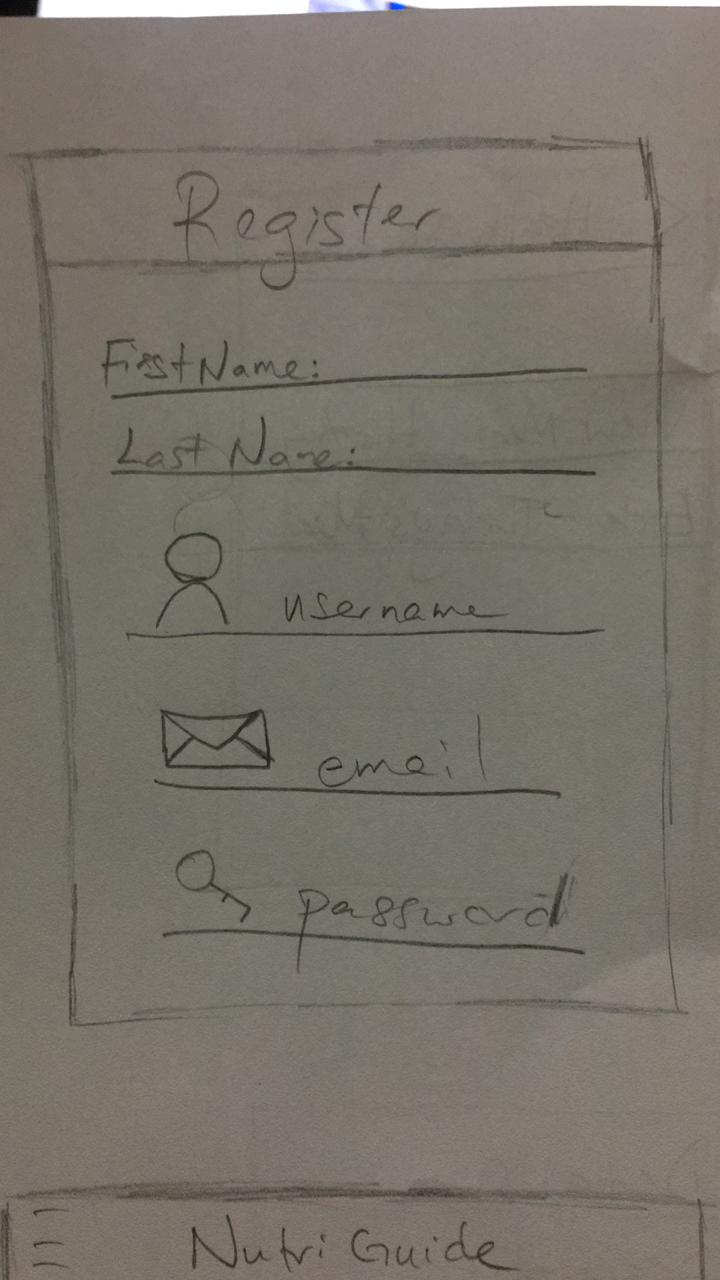 Register
First Name:
Last Name:
username
email
password
Nutri Guide